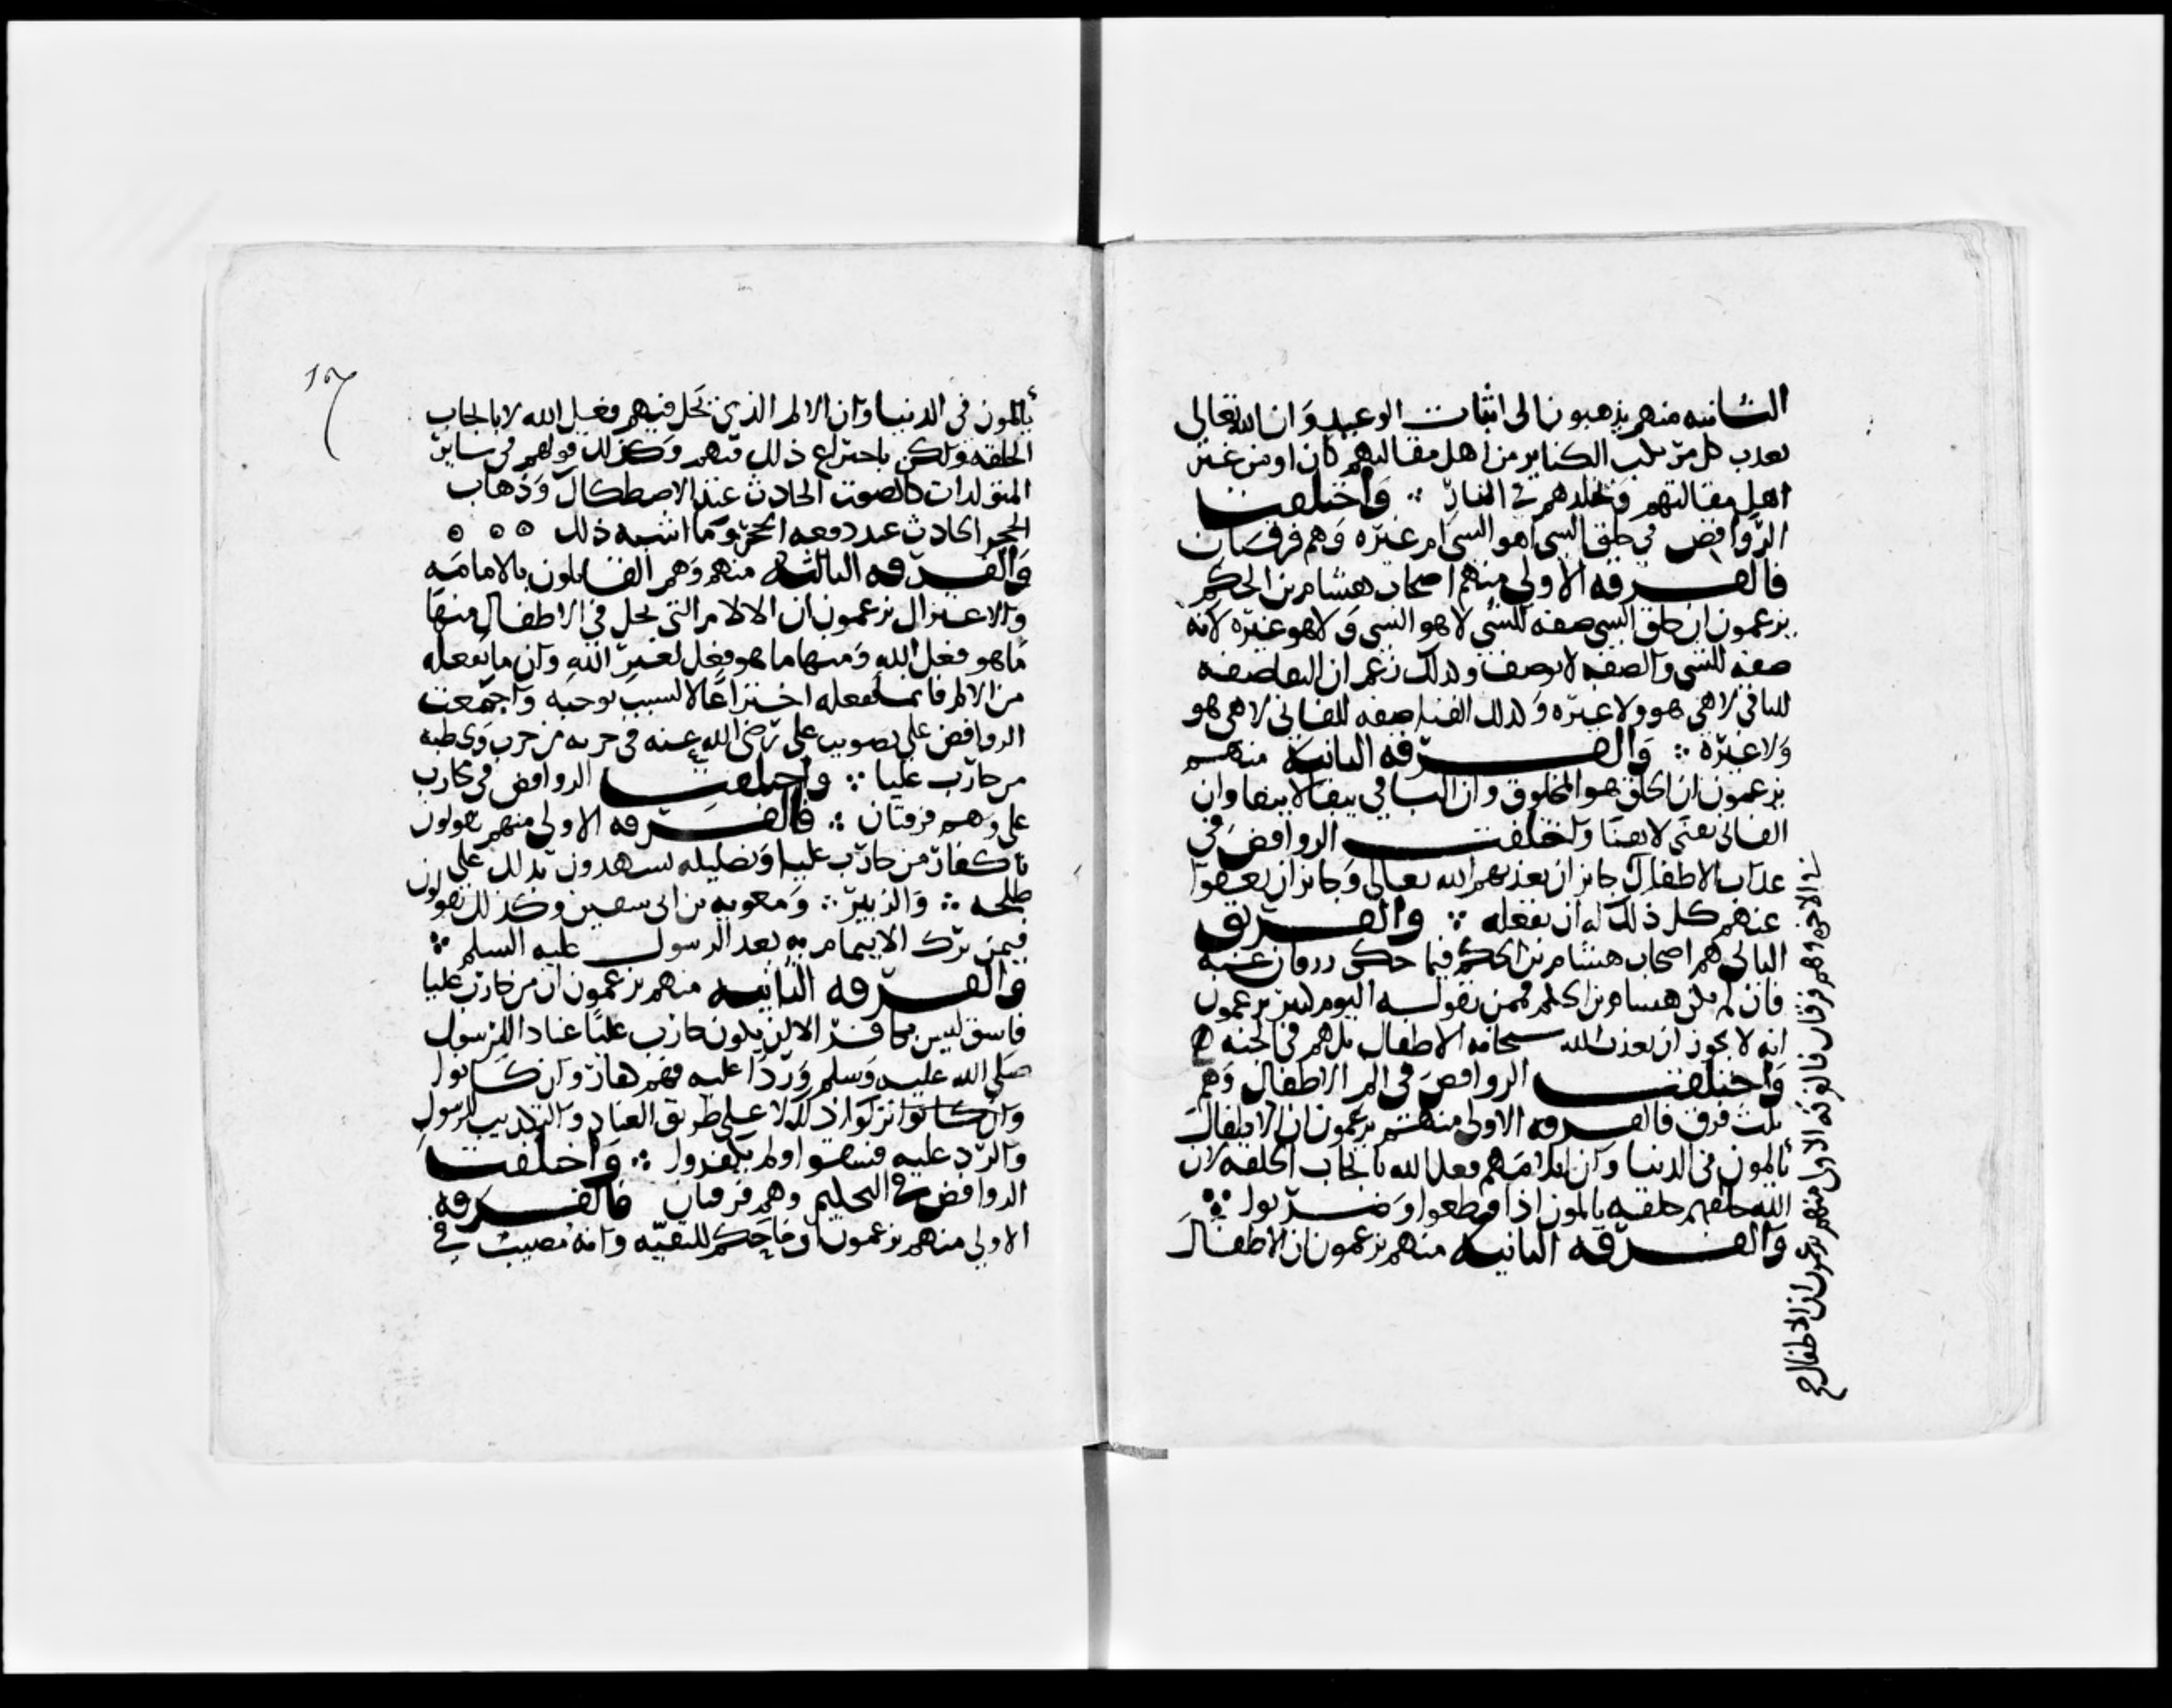 الثانيه منهم يذهبون الى اثبات الوعيد وان الله تعالى
يعذب كل مرتكب الكباير من اهل مقالتهم كان او من غير
اهل مقالتهم ويخلدهم في النار ∴ واختلفت
الروافض في خلق الشي اهو الشي ام غيره وهم فرقتان
فالفرقه الاولى منهم اصحاب هشام بن الحكم
يزعمون ان خلق الشي صفه للشي لا هو الشي ولا هو غيره لانه
صفه للشي والصفه لا توصف وكذلك زعم ان البقا صفه
للباقي لا هي هو ولا غيره وكذلك الفنا صفه للفاني لا هي هو
ولا غيره ∴ والفرقه الثانيه منهم
يزعمون ان الخلق هو المخلوق وان الباقي يبقى لا ببقا وان
الفاني يفنى لا بفنا واختلفت الروافض في
عذاب الاطفال جايز ان يعذبهم الله تعالى وجايز ان يعفوا
عنهم كل ذلك له ان يفعله ∴ والفريق
الثاني هم اصحاب هشام بن الحكم فيما حكى زرقان عنه
فان لم يكن هشام بن الحكم فممن يقوله اليوم كثير يزعمون
انه لا يجوز ان يعذب الله سبحانه الاطفال بل هم في الجنه ه
واختلفت الروافض في الم الاطفال وهم
ثلث فرق فالفرقه الاولى منهم يزعمون ان الاطفال
يالمون في الدنيا وان ايلامهم فعل الله بايجاب الخلقه لان
الله خلقهم خلقه يالمون اذا قطعوا وضربوا ∴
والفرقه الثانيه منهم يزعمون ان الاطفال
في الاخره وهم فرقتان فالفرقه الاولى منهم يزعمون ان الاطفال
يالمون في الدنيا وان الالم الذي يحل فيهم فعل الله لا بايجاب
الخلقه ولكن باختراع ذلك فيهم وكذلك قولهم في ساير
المتولدات كالصوت الحادث عند الاصطكاك وذهاب
الحجر الحادث عند دفعه الحجر وما اشبه ذلك ه ه ه
والفرقه الثالثه منهم وهم القايلون بالامامه
والاعتزال يزعمون ان الالام التي تحل في الاطفال منها
ما هو فعل الله ومنها ما هو فعل لغير الله وان ما يفعله
من الالم فانما يفعله اختراعا لا لسبب يوجبه واجمعت
الروافض على تصويب علي رضي الله عنه في حربه من حرب وتخطيه
من حارب عليا ∴ واختلفت الروافض في محارب
علي وهم فرقتان ∴ فالفرقه الاولى منهم يقولون
باكفار من حارب عليا وتضليله يشهدون بذلك على
طلحه ∴ والزبير ∴ ومعويه بن ابي سفين وكذلك يقولون
فيمن ترك الايتمام به بعد الرسول عليه السلم ∴
والفرقه الثانيه منهم يزعمون ان من حارب عليا
فاسق ليس بكافر الا ان يكون حارب عليا عنادا للرسول
صلى الله عليه وسلم وردا عليه فهم كفار وان كانوا
وان كانوا تركوا ذلك لا على طريق العناد والتكذيب للرسول
والرد عليه فسقوا ولم يكفروا ∴ واختلفت
الروافض في التحكيم وهم فرقتان فالفرقه
الاولى منهم يزعمون ان ما حكم للتقيه وانه مصيب في